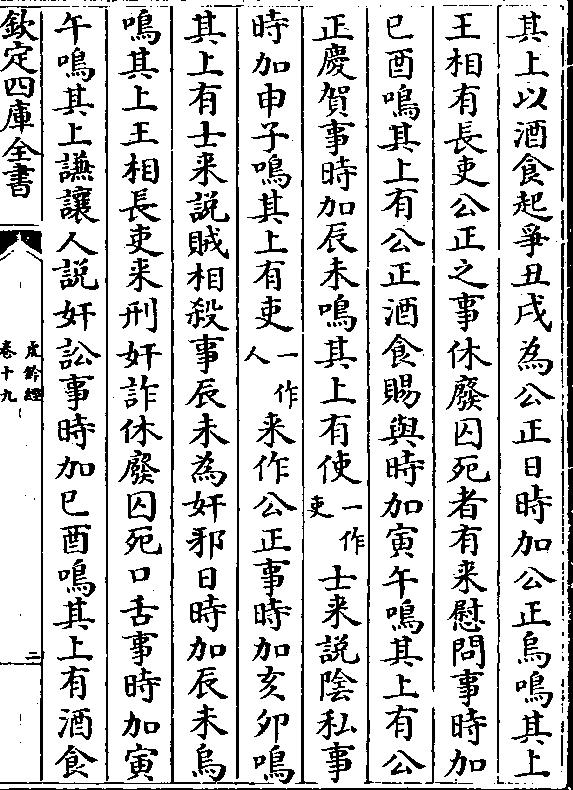 其上以酒食起爭丑戌為公正日時加公正烏鳴其上
王相有長吏公正之事休廢囚死者有来慰問事時加
巳酉鳴其上有公正酒食賜與時加寅午鳴其上有公
正慶賀事時加辰未鳴其上有使一作吏士来說陰私事
時加申子鳴其上有吏一作人来作公正事時加亥卯鳴
其上有士来說賊相殺事辰未為奸邪日時加辰未烏
鳴其上王相長吏来刑奸詐休廢囚死口舌事時加寅
午鳴其上謙讓人説奸訟事時加巳酉鳴其上有酒食
欽定四庫全書
虎鈐經
卷十九
二